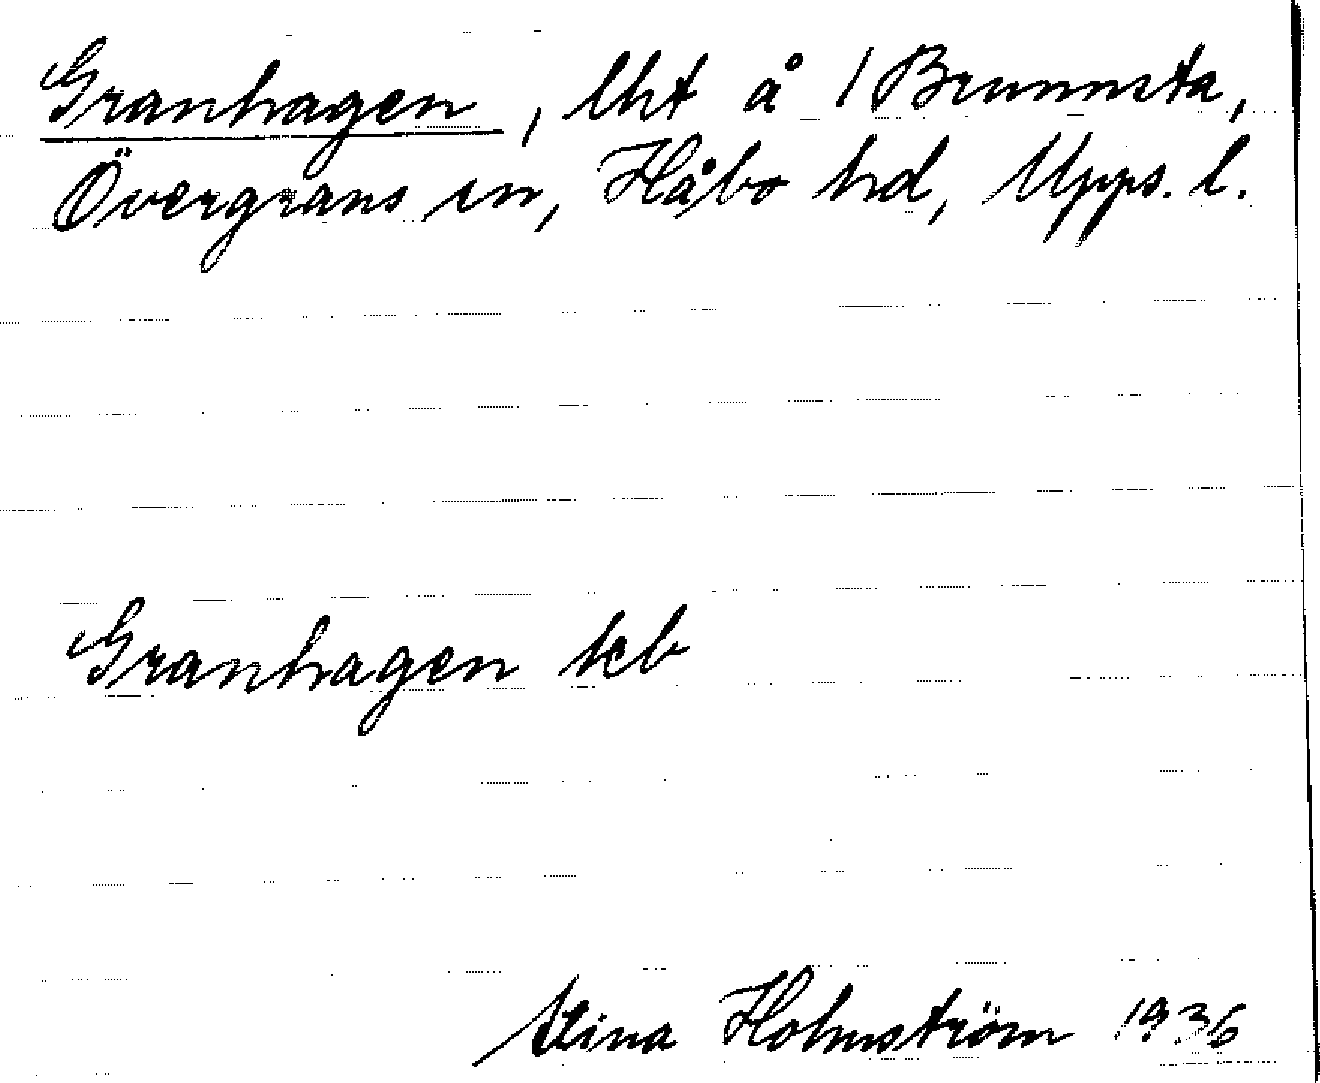 Granhagen, lht å / Brunnsta,
Övergrans sn, Håbo hd, Upps. l.
Granhagen kb
Stina Holmström 1936